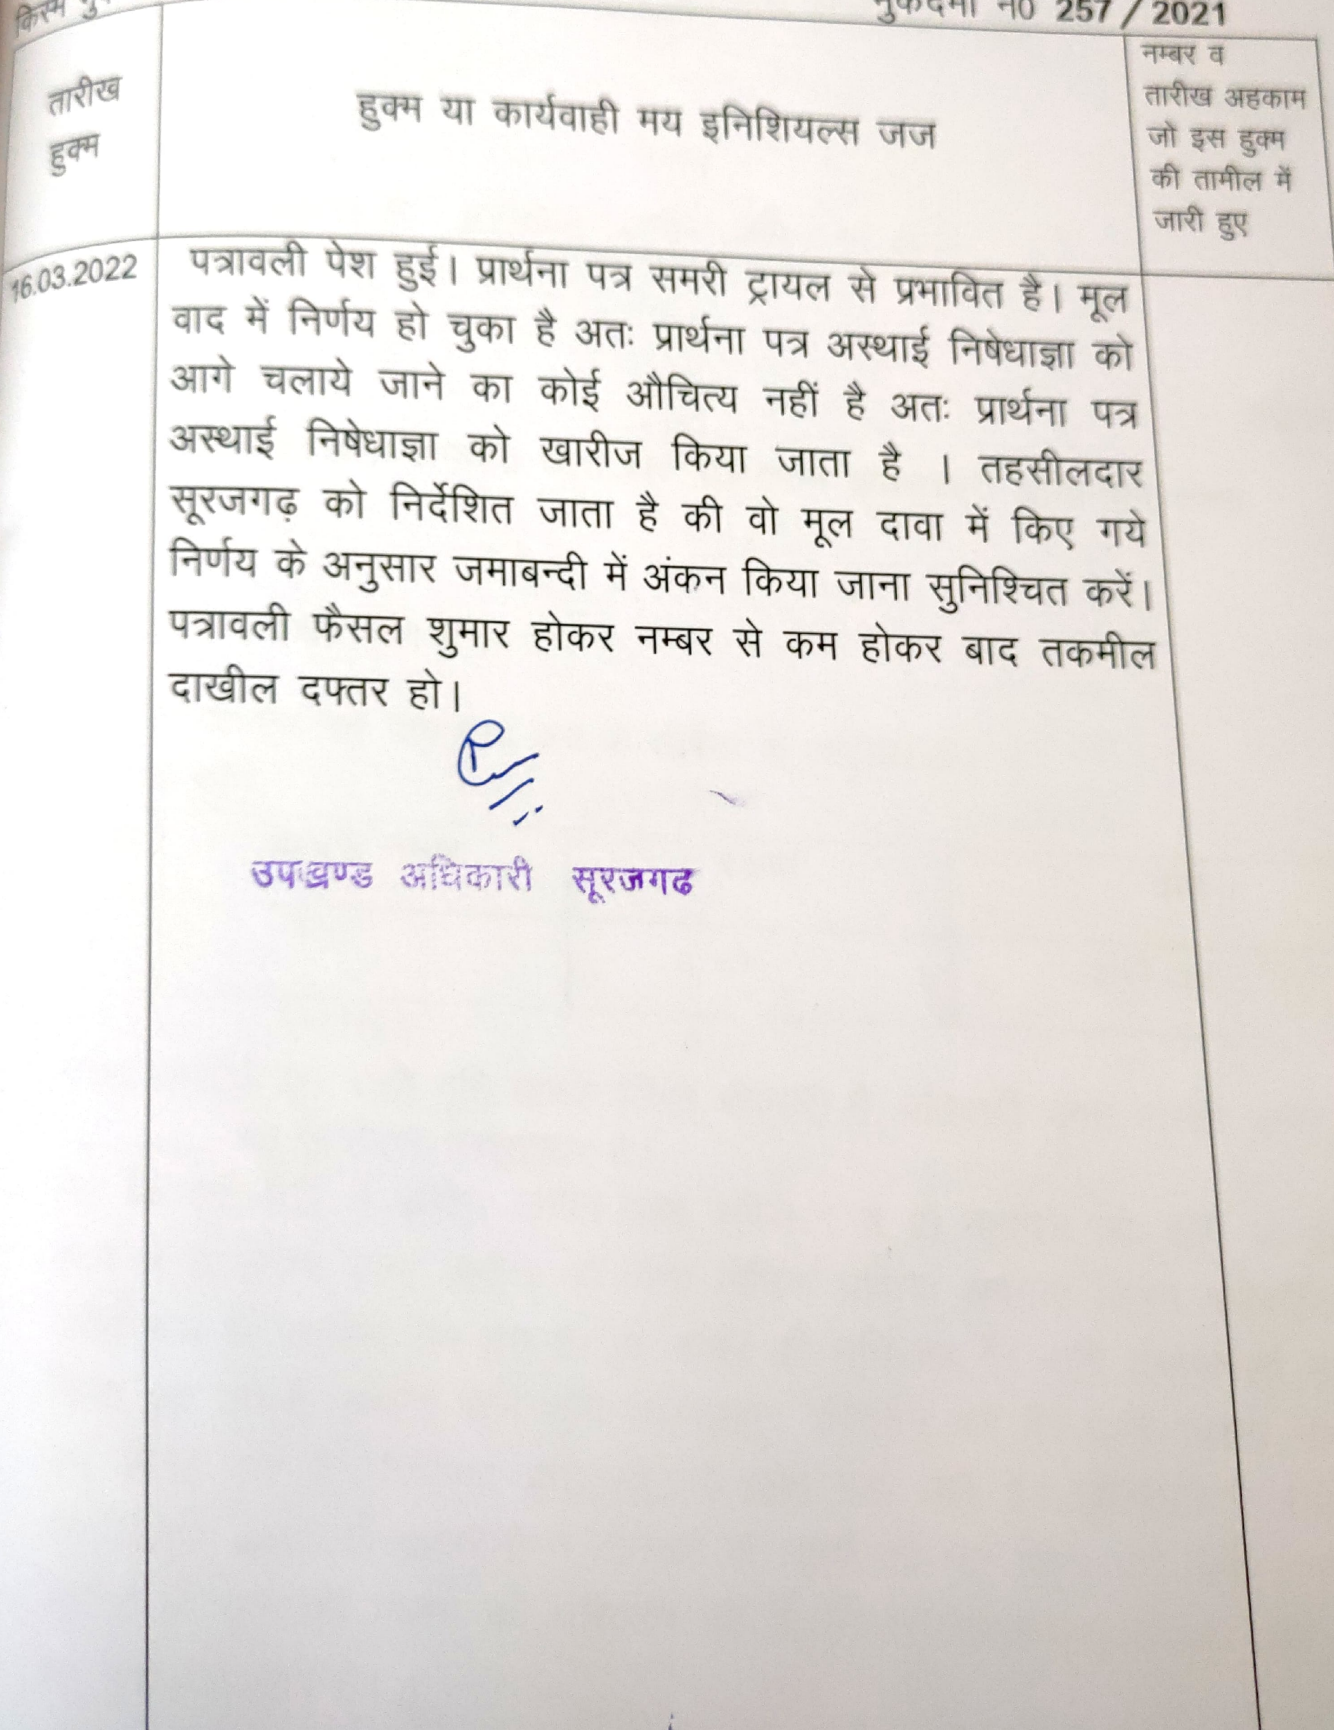 किस्म
मुकदमा न0 257 / 2021
तारीख
हुक्म
हुक्म या कार्यवाही मय इनिशियल्स जज
नम्बर व
तारीख अहकाम
जो इस हुक्म
की तामील में
जारी हुए
16.03.2022
पत्रावली पेश हुई। प्रार्थना पत्र समरी ट्रायल से प्रभावित है। मूल
वाद में निर्णय हो चुका है अतः प्रार्थना पत्र अस्थाई निषेधाज्ञा को
आगे चलाये जाने का कोई औचित्य नहीं है अतः प्रार्थना पत्र
अस्थाई निषेधाज्ञा को खारीज किया जाता है । तहसीलदार
सूरजगढ़ को निर्देशित जाता है की वो मूल दावा में किए गये
निर्णय के अनुसार जमाबन्दी में अंकन किया जाना सुनिश्चित करें।
पत्रावली फैसल शुमार होकर नम्बर से कम होकर बाद तकमील
दाखील दफ्तर हो।
उपखण्ड अधिकारी सूरजगढ